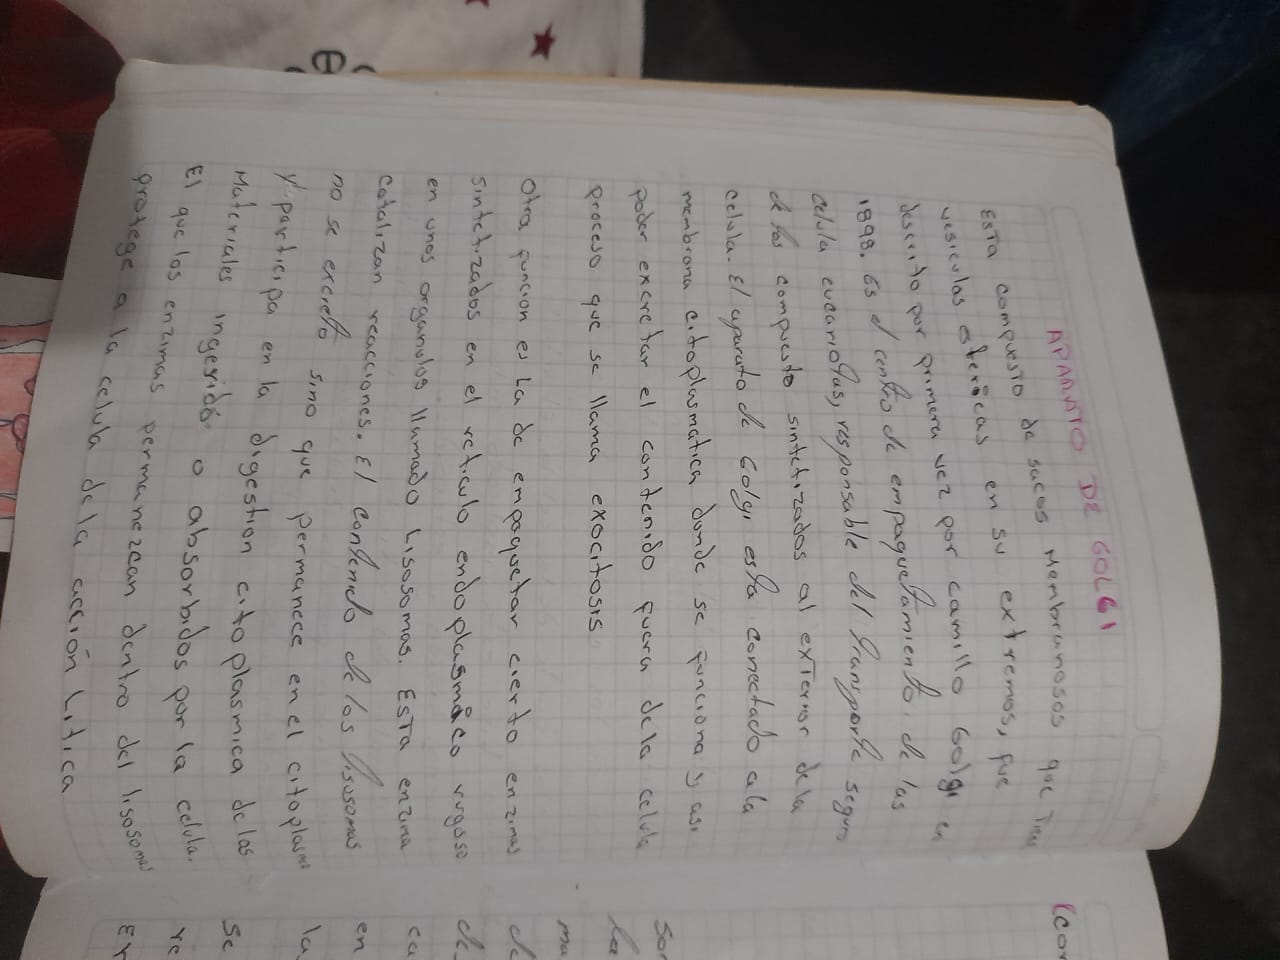 APARATO DE GOLGI
Esta compuesto de sacos Membranosos que Tiene
vesiculas sfericas en su extremos, fue
descrito por primera vez por camillo Golgi en
1898. Es el centro de empaquetamiento, de las
celula eucariotas, responsable del transporte seguro
de los compuesto sintetizados al exterior de la
celula. El aparato de Golgi esta conectado a la
membrana citoplasmatica donde se funciona y asi
poder excretar el contenido fuera de la celula
proceso que se llama exocitosis
Otra funcion es La de empaquetar cierto enzimas
sintetizados en el reticulo endoplasmaco rugoso
en unos organulos llamado Lisosomas. Esta enzima
catalizan reacciones. El contenido de los lisosomas
no se excreto sino que permanece en el citoplasma
y participa en la digestion citoplasmica de las
Materiales ingerido o absorbidos por la celula.
El que los enzimas permanezcan dentro del lisosomas
protege a la celula de la acción Litica
(cor
Sor
la
ma
de
de
ca
en
la
Se
re
Er